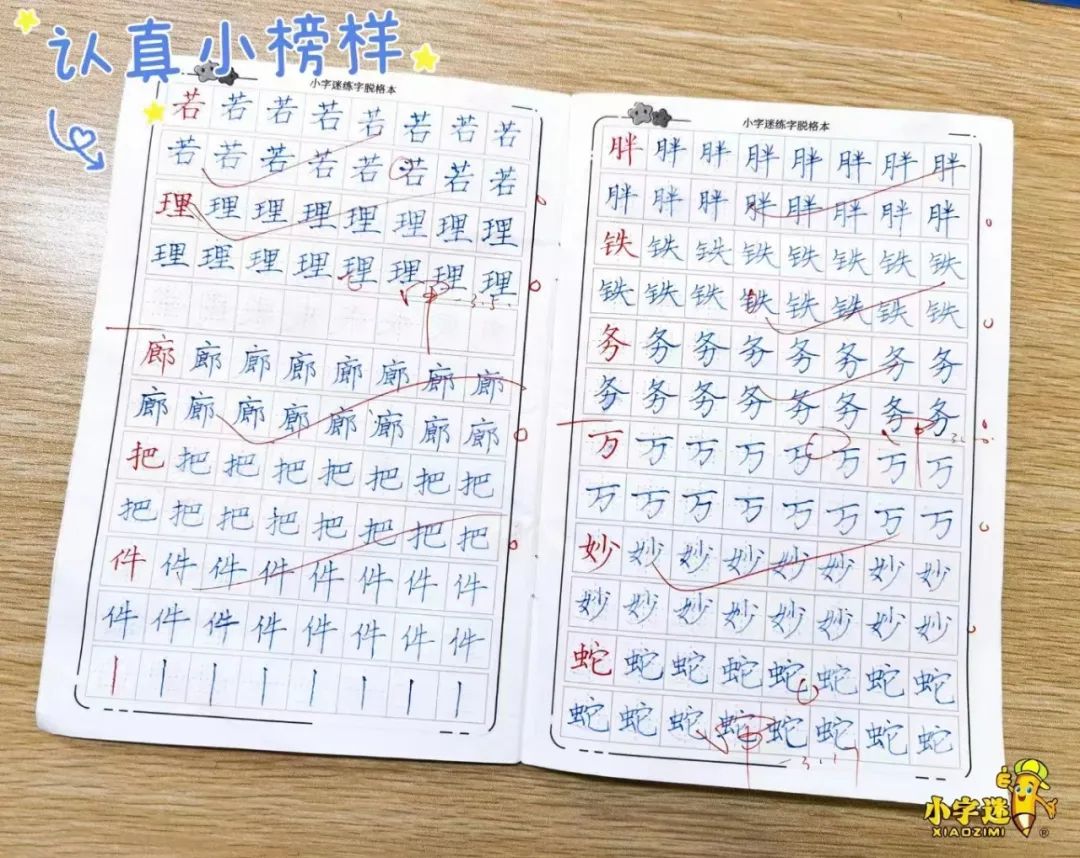 认真小榜样
小字迷练字脱格本
若若若若若若若若
若若若若若若若若
理理理理理理理理
理理理理理理理理
3.5
廊廊廊廊廊廊廊廊
廊廊廊廊廊廊廊廊
把把把把把把把把
把把把把把把把把
件件件件件件件件
件件件件件件件件
丨丨丨丨丨丨丨丨
小字迷练字脱格本
胖胖胖胖胖胖胖胖
胖胖胖胖胖胖胖胖
铁铁铁铁铁铁铁铁
铁铁铁铁铁铁铁铁
务务务务务务务务
务务务务务务务务
万万万万万万万万
万万万万万万万万
妙妙妙妙妙妙妙妙
妙妙妙妙妙妙妙妙
蛇蛇蛇蛇蛇蛇蛇蛇
蛇蛇蛇蛇蛇蛇蛇蛇
小字迷
XIAOZIMI
®